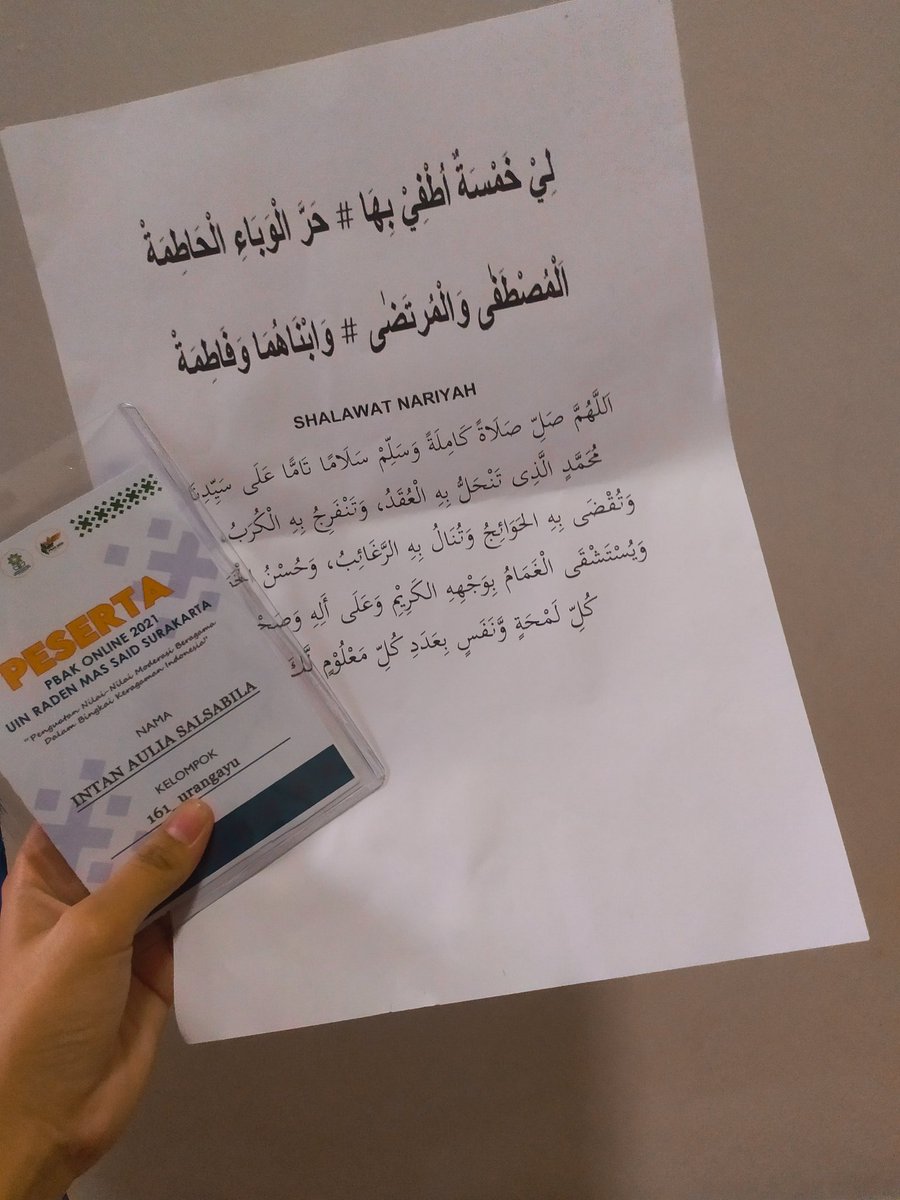 لِيْ خَمْسَةٌ اُطْفِيْ بِهَا # حَرَّ الْوَبَاءِ الْحَاطِمَةْ
اَلْمُصْطَفٰى وَالْمُرْتَضٰى # وَابْنَاهُمَا وَفَاطِمَةْ
SHALAWAT NARIYAH
اَللَّهُمَّ صَلِّ صَلَاةً كَامِلَةً وَسَلِّمْ سَلَامًا تَامًّا عَلَى سَيِّدِنَا
مُحَمَّدٍ الَّذِى تَنْحَلُّ بِهِ الْعُقَدُ، وَتَنْفَرِجُ بِهِ الْكُرَبُ
وَتُقْضَى بِهِ الْحَوَائِجُ وَتُنَالُ بِهِ الرَّغَائِبُ، وَحُسْنُ
وَيُسْتَشْقَى الْغَمَامُ بِوَجْهِهِ الكَرِيْمِ وَعَلَى أَلِهِ
كُلِّ لَمْحَةٍ وَّنَفَسٍ بِعَدَدِ كُلِّ مَعْلُوْمٍ
PESERTA
PBAK ONLINE 2021
UIN RADEN MAS SAID SURAKARTA
"Penguatan Nilai-Nilai Moderasi Beragama
Dalam Bingkai Keragaman Indonesia"
NAMA
INTAN AULIA SALSABILA
KELOMPOK
161_urangayu